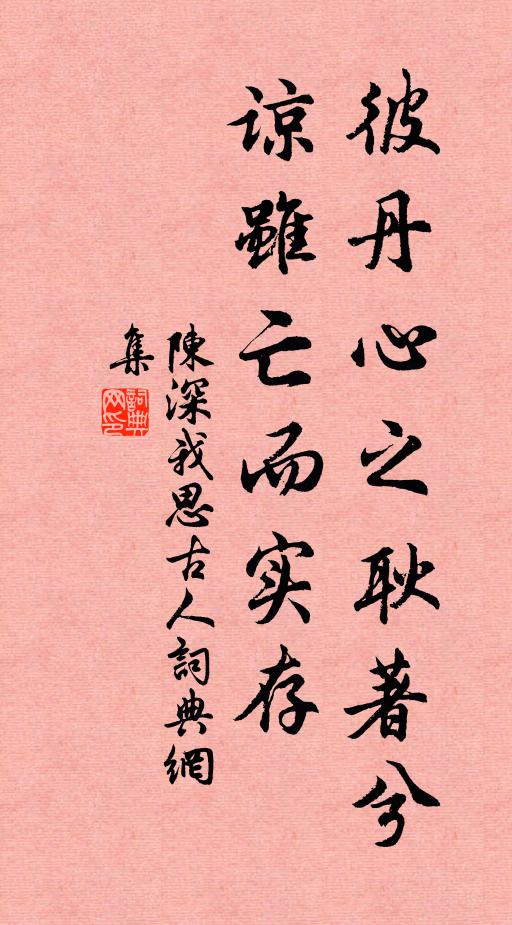 彼丹心之耿著兮
谅雖亡而实存
陳深我思古人詞典網
集
詞典
网印